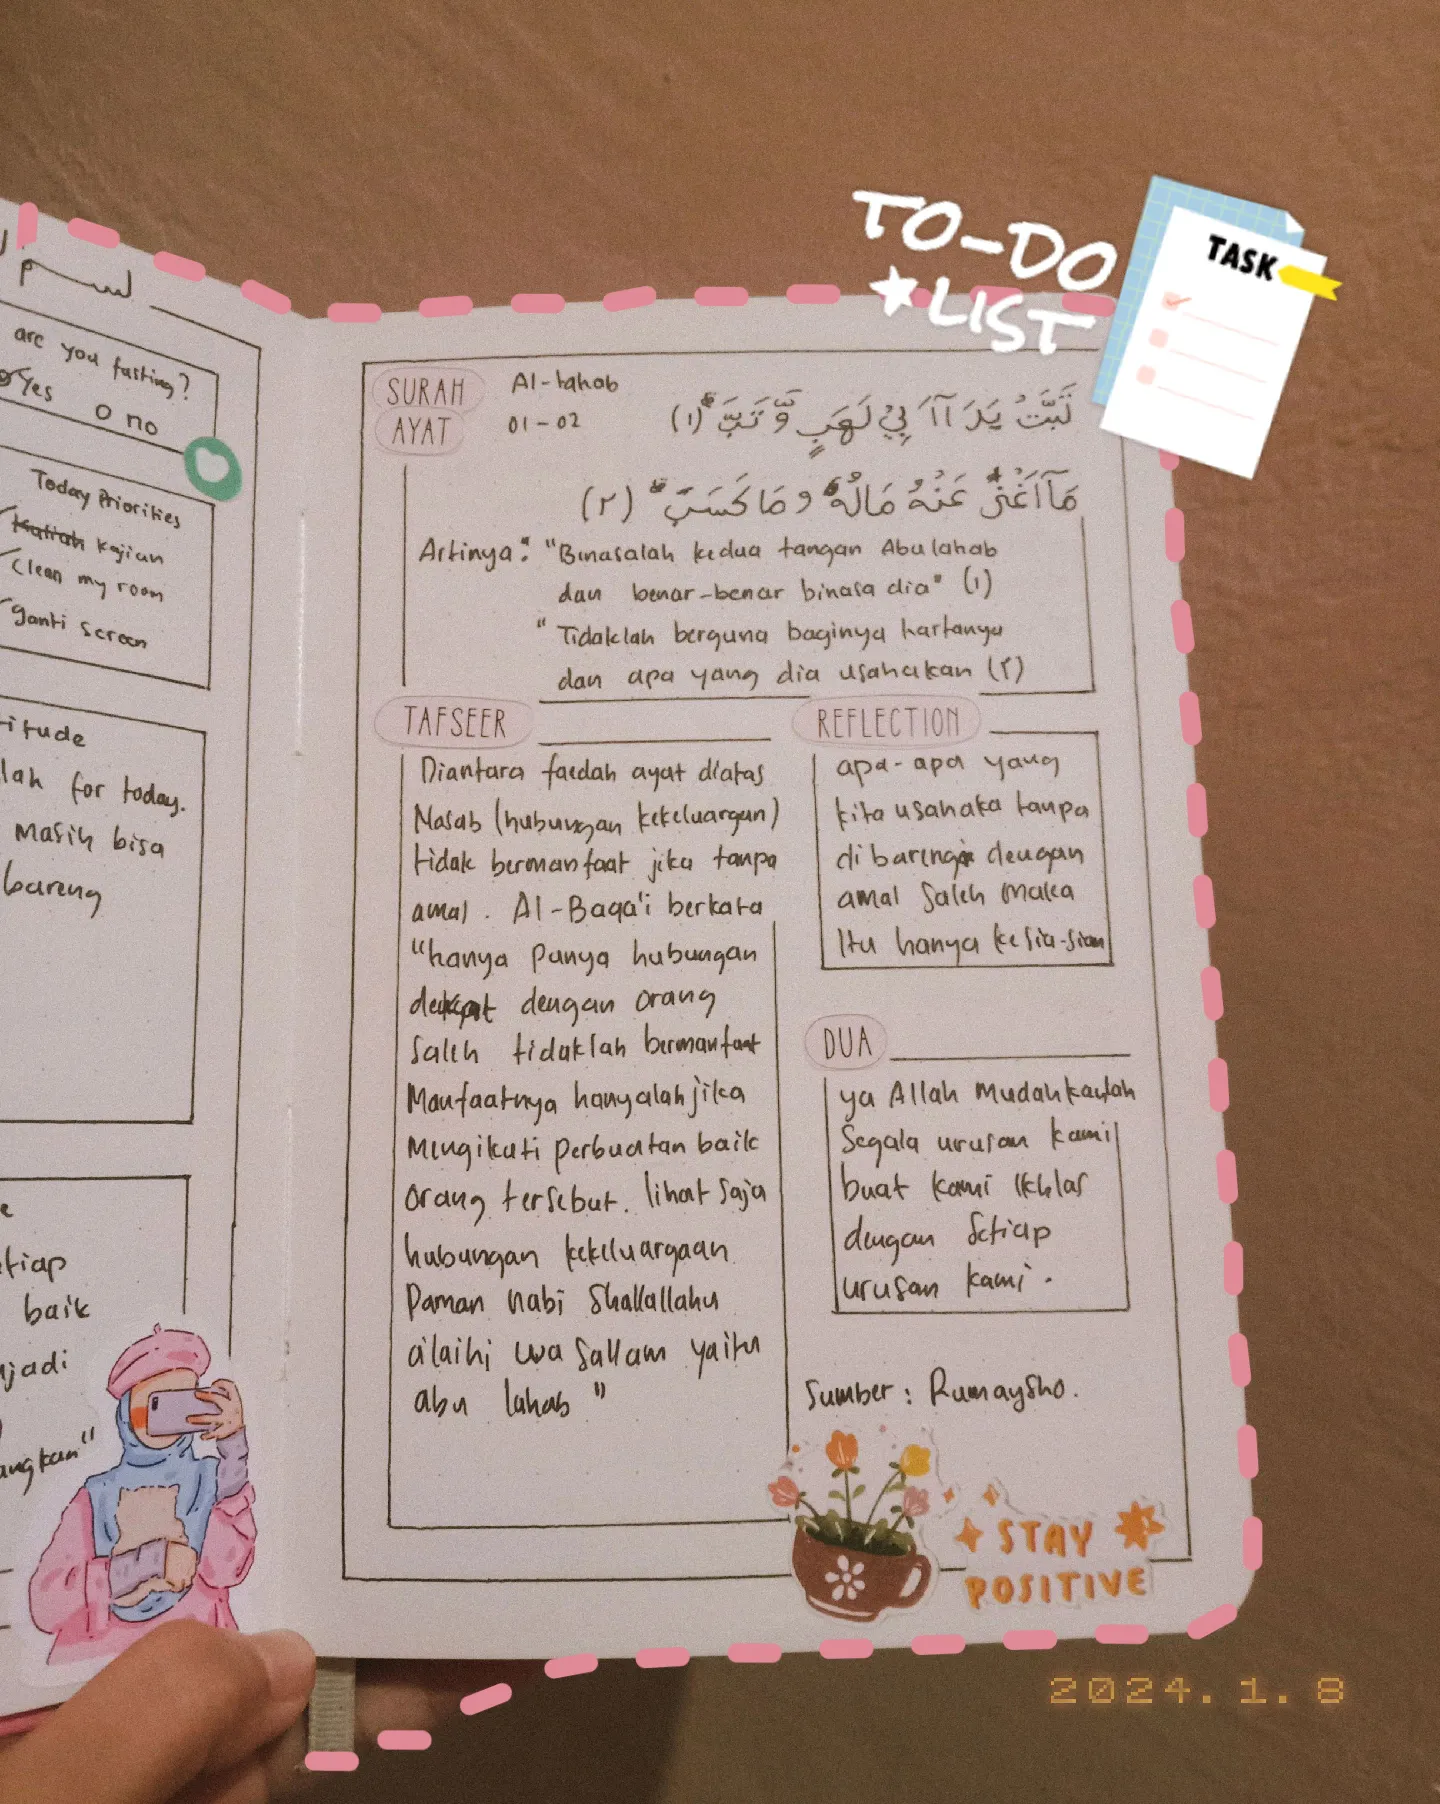 TO-DO
LIST
TASK
بسم
are you fasting?
Yes O no
Today Priorities
Kuliah kajian
Clean my room
ganti screen
itude
lah for today.
masih bisa
bareng
e
etiap
baik
jadi
angkan"
SURAH Al-lahab
AYAT 01-02
تَبَّتْ يَدَ اۤ اَ بِيْ لَهَبٍ وَّ تَبَّ (١)
مَاۤ اَغْنٰى عَنْهُ مَالُهٗ وَمَا كَسَبَ (٢)
Artinya : "Binasalah kedua tangan Abu lahab
dan benar-benar binasa dia" (١)
" Tidaklah berguna baginya hartanya
dan apa yang dia usahakan (٢)
TAFSEER
Diantara faedah ayat diatas
Nasab (hubungan kekeluargan)
tidak bermanfaat jika tanpa
amal . Al-Baqa'i berkata
"hanya punya hubungan
dekat dengan orang
saleh tidaklah bermanfaat
Manfaatnya hanyalah jika
Mengikuti perbuatan baik
orang tersebut. lihat saja
hubungan kekeluargaan
Paman nabi Shallallahu
a'laihi wa sallam yaitu
abu lahab "
REFLECTION
apa-apa yang
kita usahaka tanpa
di barengi dengan
amal saleh maka
Itu hanya kesia-sian
DUA
ya Allah mudahkanlah
Segala urusan kami
buat kami ikhlas
dengan setiap
urusan kami .
Sumber : Rumaysho.
STAY
POSITIVE
2024. 1. 8